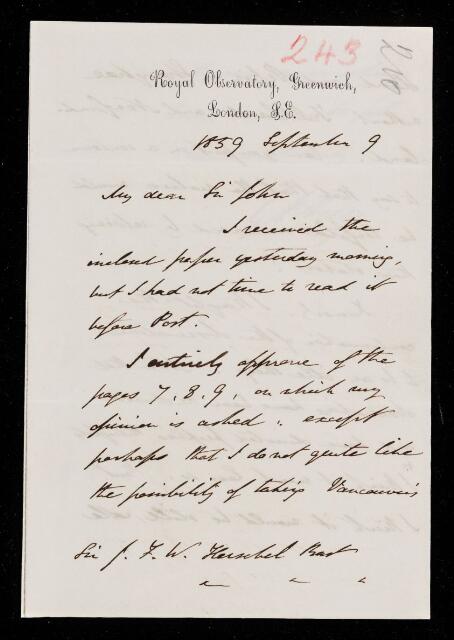 243
210
Royal Observatory, Greenwich,
London, S.E.
1859 September 9
My dear Sir John
I received the
inclosed paper yesterday morning,
but I had not time to read it
before Post.
I entirely approve of the
pages 7, 8, 9, on which my
opinion is asked: except
perhaps that I do not quite like
the possibility of taking Vancouver's
Sir J. F. W. Herschel Bart